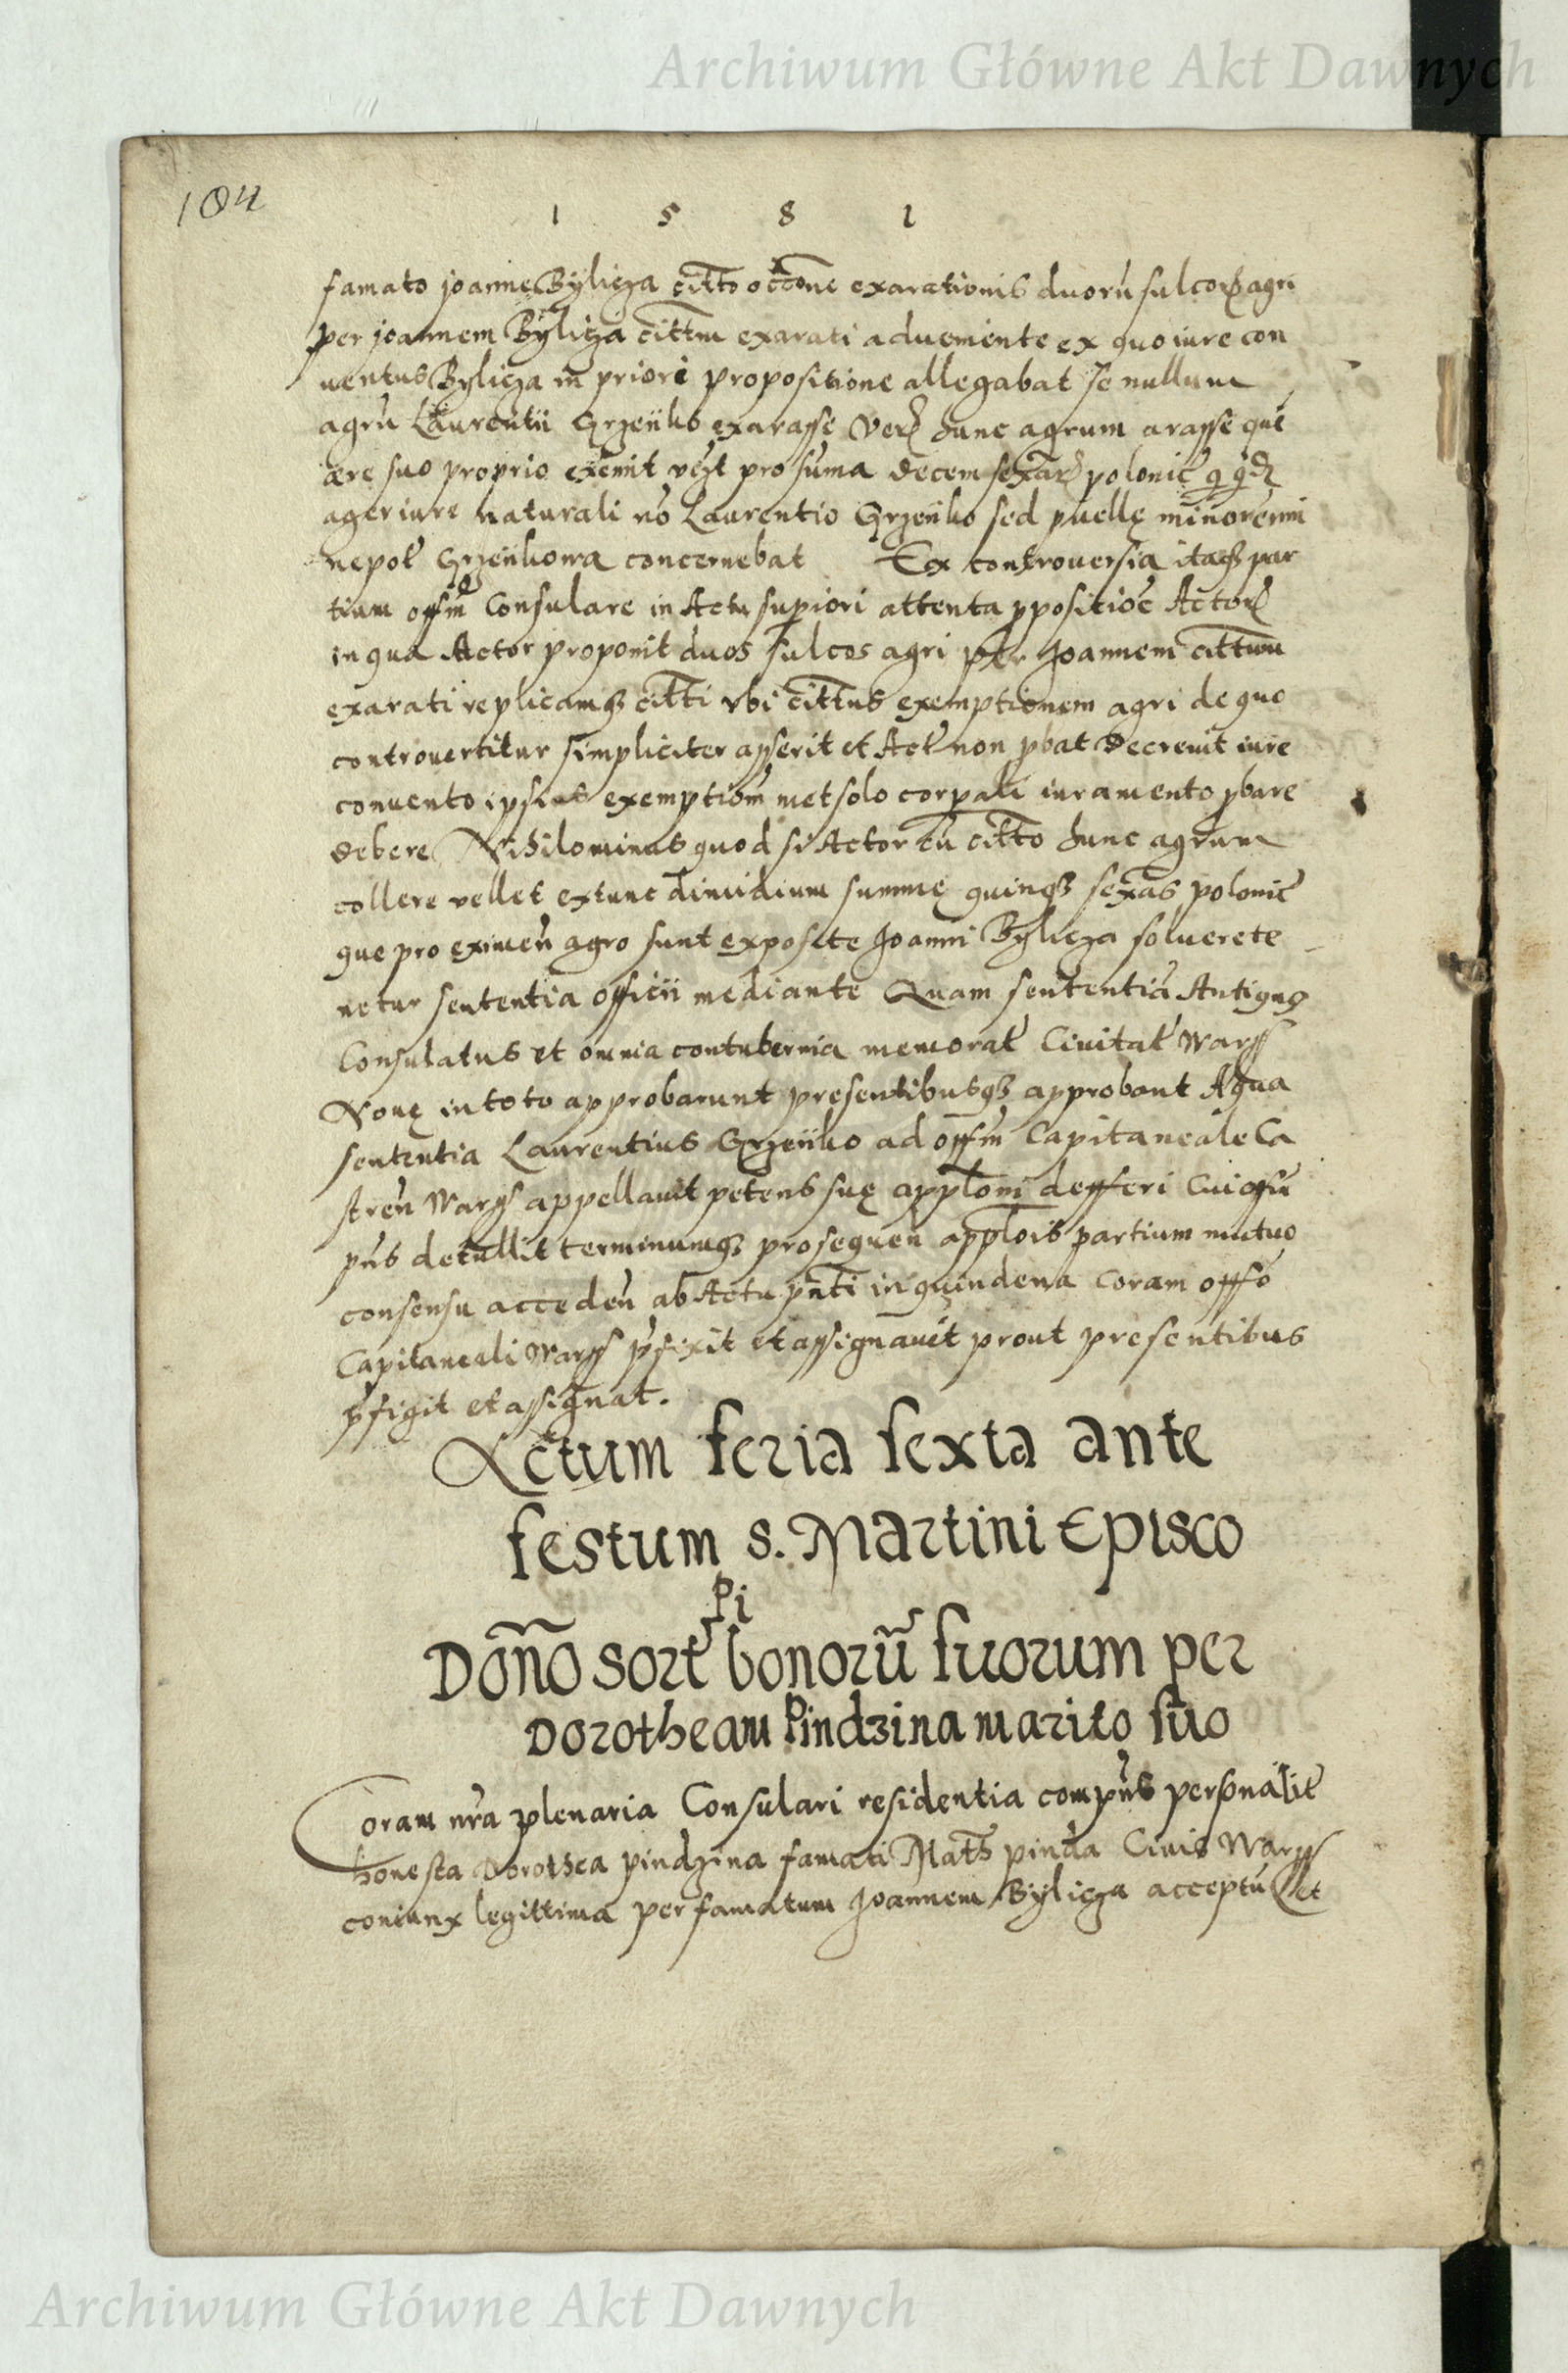 Archiwum Główne Akt Dawnych
104
1 5 8 1
famato joanne Bÿlicza citto occōne exarationis duorū sulcorꝫ agri
per joannem Bÿlicza cittm exarati adueniente ex quo iure con
uentus Bÿlicza in priori propositione allegabat se nullum
agrū Laurentii Grzeiiko exarasse Verꝫ hunc agrum arasse quē
ære suo proprio exemit pro suma decem sexar polonic
ager iure naturali nō Laurentio Grzeiiko sed puellę minorenni
nepot Grzeiikowa concernebat Ex controuersia itaqꝫ par
tium offm Consulare in Actu superiori attenta ppositioē Actorꝫ
in qua Actor proponit duos sulcos agri per Joannem cittum
exarati replicamqꝫ citti vbi cittus exemptionem agri de quo
controuertitur simpliciter asserit et Act non pbat Decreuit iure
conuento ipsius exemptiōm met solo corpali iuramento pbare
debere Nihilominus quod si Actor cū citto hunc agrum
collere vellet extunc dimidium summę quinqꝫ sexas polonic
que pro eximen agro sunt exposite Joanni Bÿlicza soluere te
netur sententia officii mediante Quam sententiā Antiquꝫ
Consulatus et omnia contubernia memorat Ciuitat Warss
Nouę in toto approbarunt presentibusqꝫ approbant A qua
sententia Laurentius Grzeiiko ad offm Capitaneale Ca
stren Warss appellauit petens suę applōni defferi Cui offm
pns detullit terminumqꝫ prosequen applōis partium mutuo
consensu acceden ab Actu pnti in quindena coram offo
Capitaneali Warss pfixit et assignauit prout presentibus
pfigit et assignat.
Actum feria sexta ante
festum S. Martini Episco
Pi
Donño sort bonorū suorum per
Dorotheam Pindzina marito suo
Coram nra plenaria Consulari residentia compns personalit
honesta Dorothea pindzina famati Math pinda Ciuis Warss
coniunx legittima per famatum Joannem Bÿlicza acceptū et
Archiwum Główne Akt Dawnych